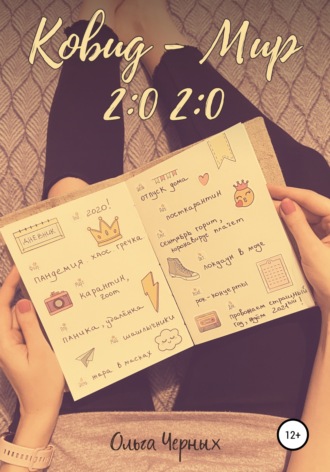 Ковид - Мир
2:0 2:0
ДНЕВНИК
2020!
пандемия. хаос гречка
карантин,
zoom
паника, удалёнка
шашлычники
жара в масках
отпуск дома
посткарантин
сентябрь горит,
коронавирус плачет
локдаун в моде
рок-концерты
провожаем страшный
год, ждем 2021!
Ольга Черных
12+